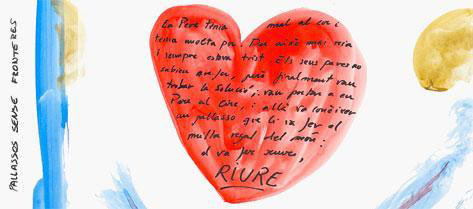 PALLASSOS SENSE FRONTERES
En Pere tenia mal al cor i
tenia molta por. Per això mai reia
i sempre estava trist. Els seus pares no
sabien què fer, però finalment van
trobar la solució; van portar a en
Pere al Circ, i allà va conèixer
un pallasso que li va fer el
millor regal del món:
el va fer riure,
RIURE